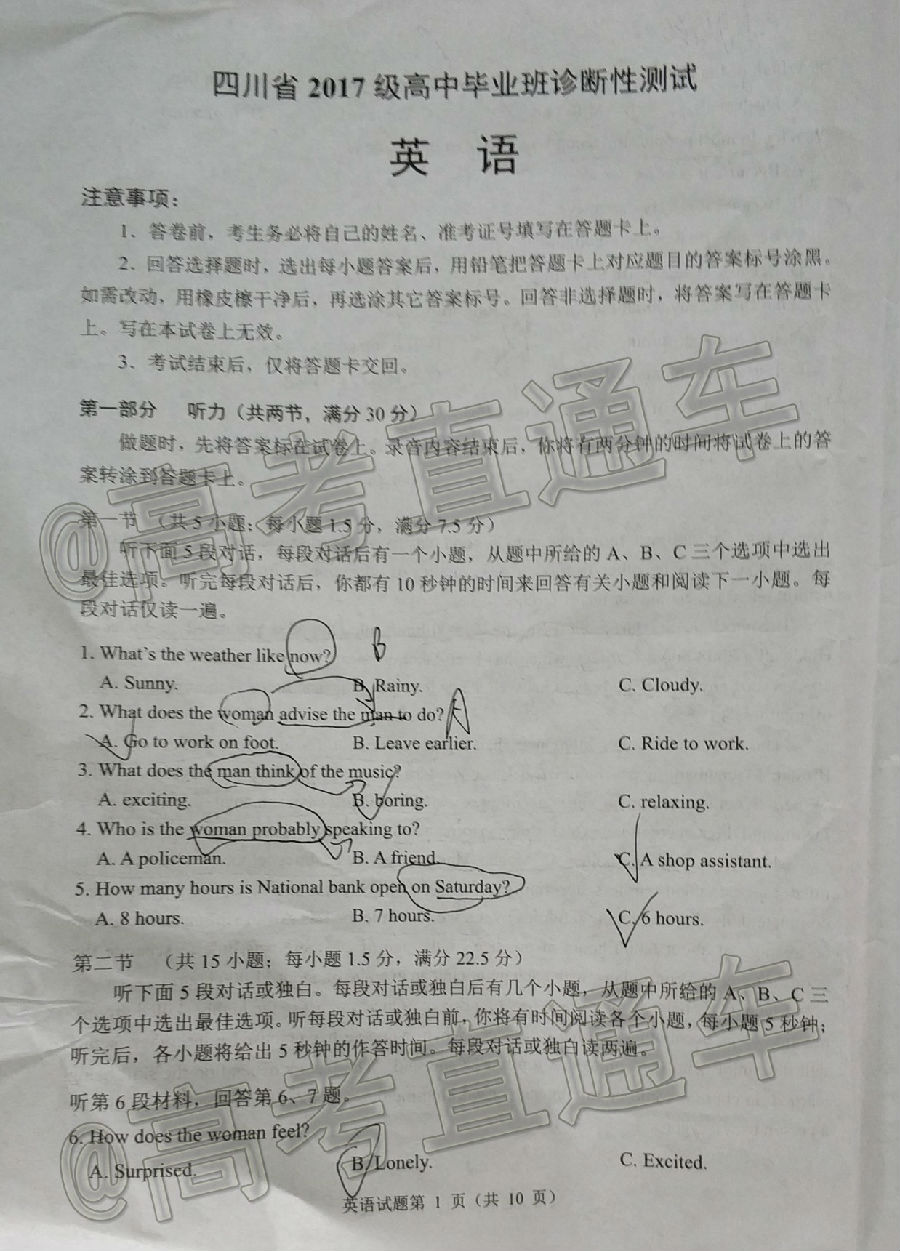 四川省 2017 级高中毕业班诊断性测试
英 语
注意事项：
1．答卷前，考生务必将自己的姓名、准考证号填写在答题卡上。
2．回答选择题时，选出每小题答案后，用铅笔把答题卡上对应题目的答案标号涂黑。
如需改动，用橡皮擦干净后，再选涂其它答案标号。回答非选择题时，将答案写在答题卡
上。写在本试卷上无效。
3．考试结束后，仅将答题卡交回。
第一部分 听力（共两节，满分 30 分）
做题时，先将答案标在试卷上。录音内容结束后，你将有两分钟的时间将试卷上的答
案转涂到答题卡上。
@高考直通车
第一节 （共 5 小题；每小题 1.5 分，满分 7.5 分）
听下面 5 段对话，每段对话后有一个小题，从题中所给的 A、B、C 三个选项中选出
最佳选项。听完每段对话后，你都有 10 秒钟的时间来回答有关小题和阅读下一小题。每
段对话仅读一遍。
1. What's the weather like now? B
A. Sunny. B. Rainy. C. Cloudy.
2. What does the woman advise the man to do? A
A. Go to work on foot. B. Leave earlier. C. Ride to work.
3. What does the man think of the music?
A. exciting. B. boring. C. relaxing.
4. Who is the woman probably speaking to?
A. A policeman. B. A friend. C. A shop assistant.
5. How many hours is National bank open on Saturday?
A. 8 hours. B. 7 hours. C. 6 hours.
第二节 （共 15 小题；每小题 1.5 分，满分 22.5 分）
听下面 5 段对话或独白。每段对话或独白后有几个小题，从题中所给的 A、B、C 三
个选项中选出最佳选项。听每段对话或独白前，你将有时间阅读各个小题，每小题 5 秒钟；
听完后，各小题将给出 5 秒钟的作答时间。每段对话或独白读两遍。
@高考直通车
听第 6 段材料，回答第 6、7 题。
6. How does the woman feel?
A. Surprised. B. Lonely. C. Excited.
英语试题第 1 页（共 10 页）